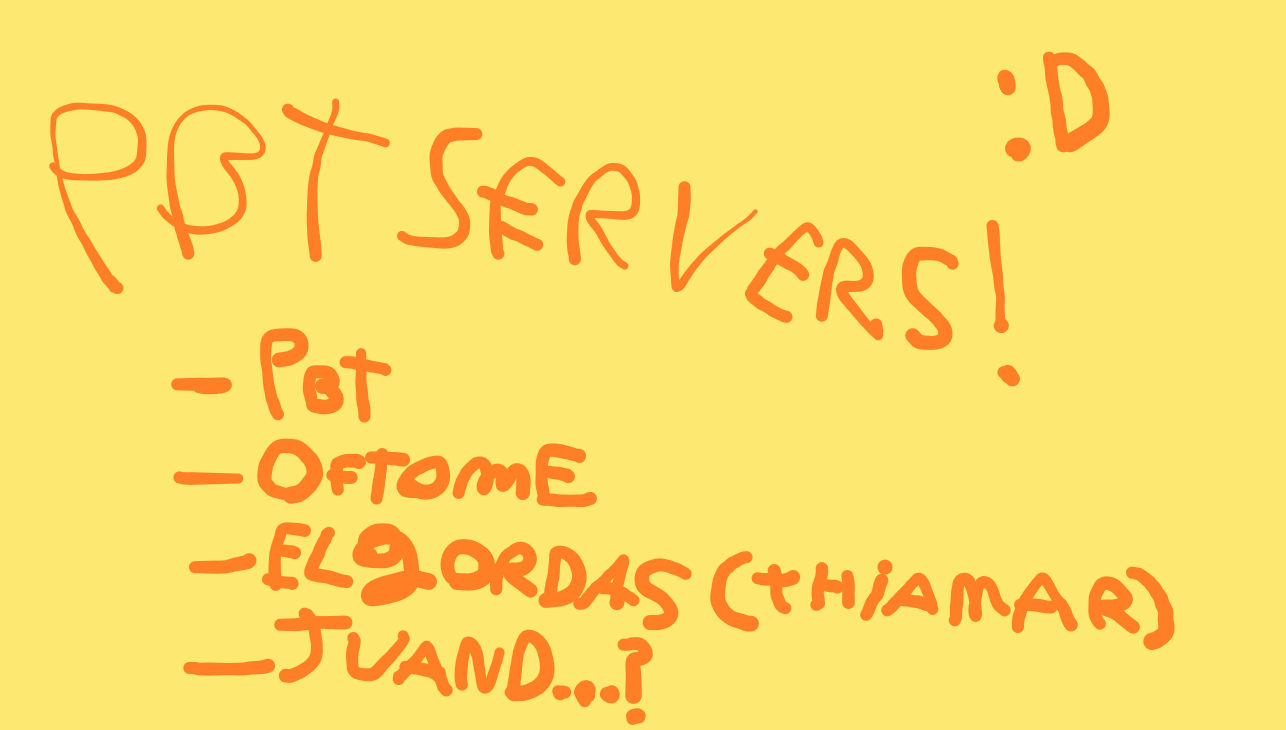 :D
PBT SERVERS!
- PBT
- OFTOME
- ELgORDAS (tHiAMAR)
- JUAND...?